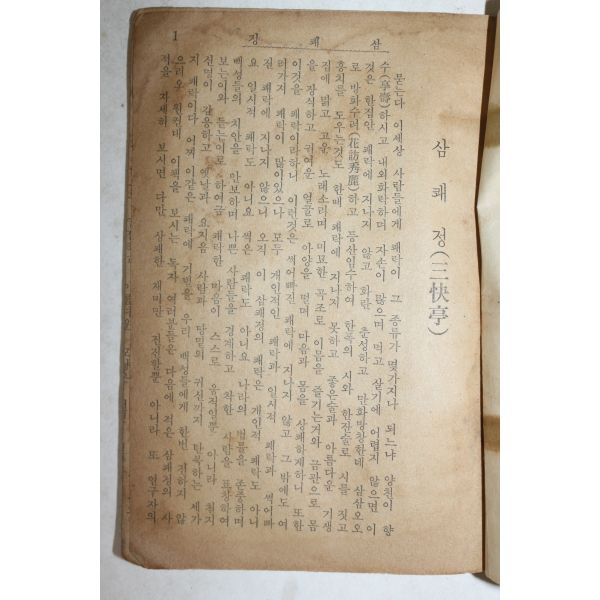 삼쾌정
1
삼쾌정(三快亭)
묻는다 이세상 사람들에게 쾌락이 그 종류가 몇가지나 되느냐 양친이 향
수(享壽)하시고 내외화락하며 자손이 많으며 먹고 살기에 어렵지 않으면 이
것은 한집안 쾌락에 지나지 않고 화란 춘성하고 만화방창한데 삼삼오오
로 방화수려(花訪秀麗)하고 등산임수하여 한폭의 시와 한잔술로 시를 짓고
흥치를 도우는것도 한때 쾌락에 지나지 못하고 좋은술과 아름다운 기생
집에 맑고 고운 노래소리며 미묘한 곡조로 이몸을 즐기는거와 금관으로 몸
을 장식하고 귀여운 얼굴로 아양을 떨며 마음과 몸을 상쾌하게하니 또한
이것을 쾌락이라하니 이런것은 썩어빠진 쾌락에 지나지 않고 그 밖에도 여
러가지 쾌락이 많이있으나 모두 개인적인 쾌락과 일시적 쾌락과 썩어빠
진 쾌락에 지나지 않으니 오직 이 삼쾌정의 쾌락은 개인적 쾌락도 아니
요 일시적 쾌락도 아니요 썩은 쾌락도 아니요 나라의 법률을 존중하며
백성들의 치안을 안보하며 나쁜 사람들을 경계하고 착한 사람을 표창하여
보는이와 듣는이로 하여금 쾌락한 마음이 스스로 움직일뿐 아니라 천지
신명이 감동하고 옛날과 요지음 사람과 귀신까지 탄복하는 제가
지 쾌락이다 어찌 이같은 쾌락에 기변을 우리 백성들에게 한번 전하지 않
으리오 원컨데 이책을 보시는 독자 여러분들은 다음에 적은 삼쾌정의 사
적을 자세히 보시면 다만 상쾌한 재미만 진진할뿐 아니라 또 연구자의